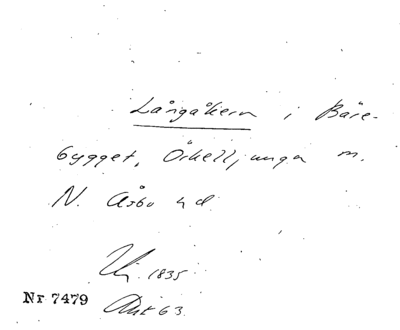 Långåkern i Bäre-
bygget, Örkelljunga m.
N. Åsbo hd.
1835
Nr 7479 Akt 63.